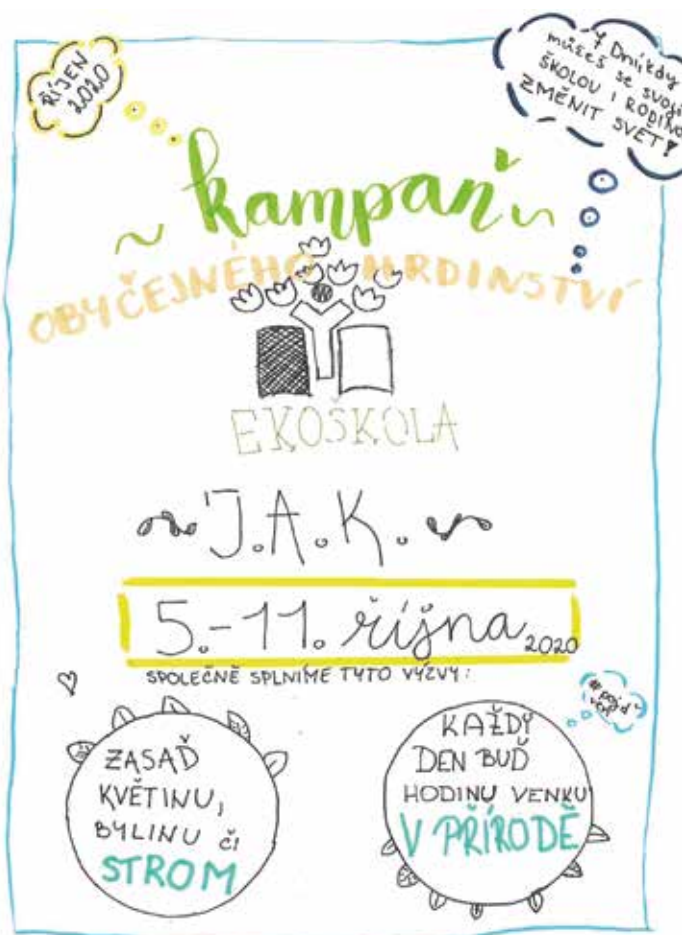 ŘÍJEN
2020
7 Dní, kdy
můžeš se svojí
ŠKOLOU I RODINO
ZMĚNIT SVĚT!
kampaň
OBYČEJNÉHO HRDINSTVÍ
EKOŠKOLA
J.A.K.
5.-11. října 2020
SPOLEČNĚ SPLNÍME TYTO VÝZVY:
ZASAĎ
KVĚTINU,
BYLINU či
STROM
#pojď
ven
KAŽDÝ
DEN BUĎ
HODINU VENKU
V PŘÍRODĚ